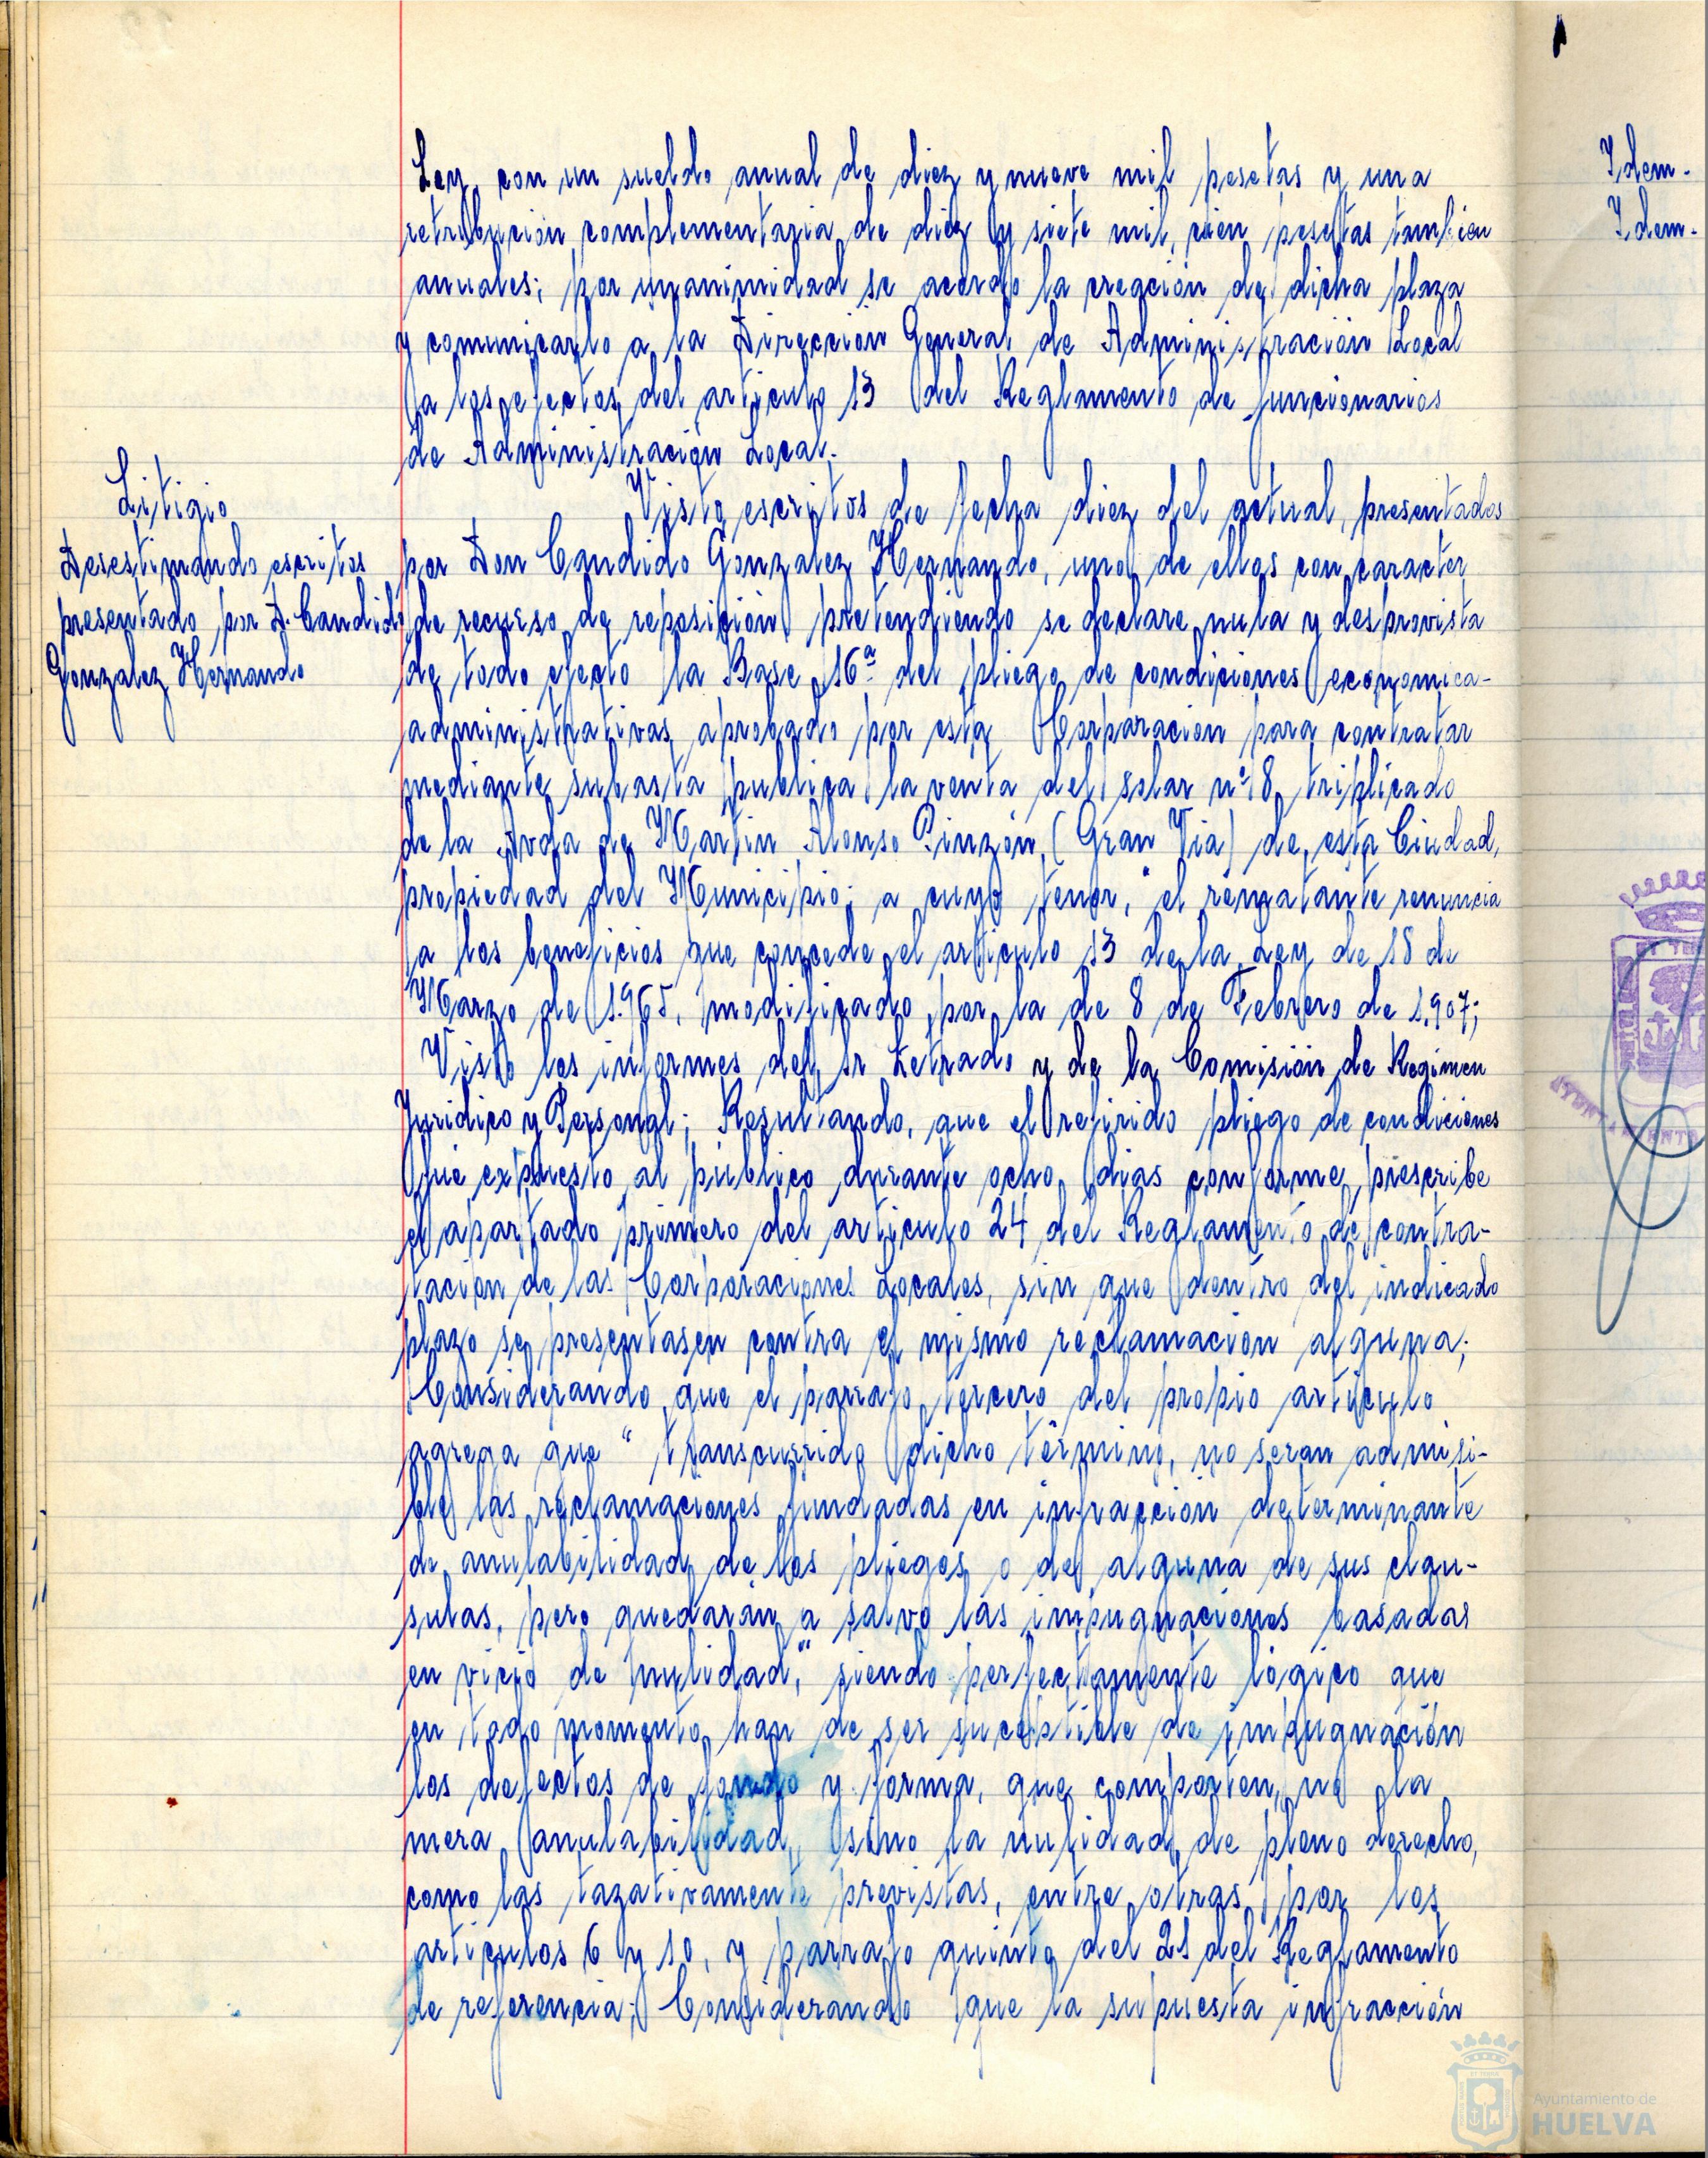 Ley, con un sueldo anual de diez y nueve mil pesetas y una
retribución complementaria de diez y siete mil cien pesetas tambien
anuales; por unanimidad se acordó la creación de dicha plaza
y comunicarlo a la Dirección General de Administración Local
a los efectos del articulo 13 del Reglamento de funcionarios
de Administración Local.
Litigio
Desestimando escritos
presentado por D. Candido
Gonzalez Hernando
Visto escritos de fecha diez del actual, presentados
por Don Candido Gonzalez Hernando, uno de ellos con caracter
de recurso de reposición pretendiendo se declare nula y desprovista
de todo efecto la Base 16ª del pliego de condiciones economica-
administrativas aprobado por esta Corporacion para contratar
mediante subasta publica la venta del solar nº 8 triplicado
de la Avda de Martin Alonso Pinzón, (Gran Via) de esta Ciudad,
propiedad del Municipio; a cuyo tenor, "el rematante renuncia
a los beneficios que concede el articulo 13 de la Ley de 18 de
Marzo de 1.965, modificado por la de 8 de Febrero de 1.907;
Visto los informes del Sr Letrado y de la Comisión de Regimen
Juridico y Personal; Resultando, que el referido pliego de condiciones
fue expuesto al público durante ocho dias conforme prescribe
el apartado primero del articulo 24 del Reglamento de contra-
tación de las Corporaciones Locales, sin que dentro del indicado
plazo se presentasen contra el mismo reclamacion alguna;
Considerando que el parrafo tercero del propio articulo
agrega que "transcurrido dicho término, no seran admisi-
ble las reclamaciones fundadas en infracción determinante
de anulabilidad de los pliegos o de alguna de sus clau-
sulas, pero quedarán a salvo las impugnaciones basadas
en vicio de nulidad," siendo perfectamente lógico que
en todo momento han de ser suceptible de impugnación
los defectos de fondo y forma, que comporten, no la
mera anulabilidad, sino la nulidad de pleno derecho,
como las tazativamente previstas, entre otras, por los
articulos 6 y 10, y parrafo quinto del 21 del Reglamento
de referencia; Considerando que la supuesta infracción
Idem.
Idem.
Ayuntamiento de
HUELVA